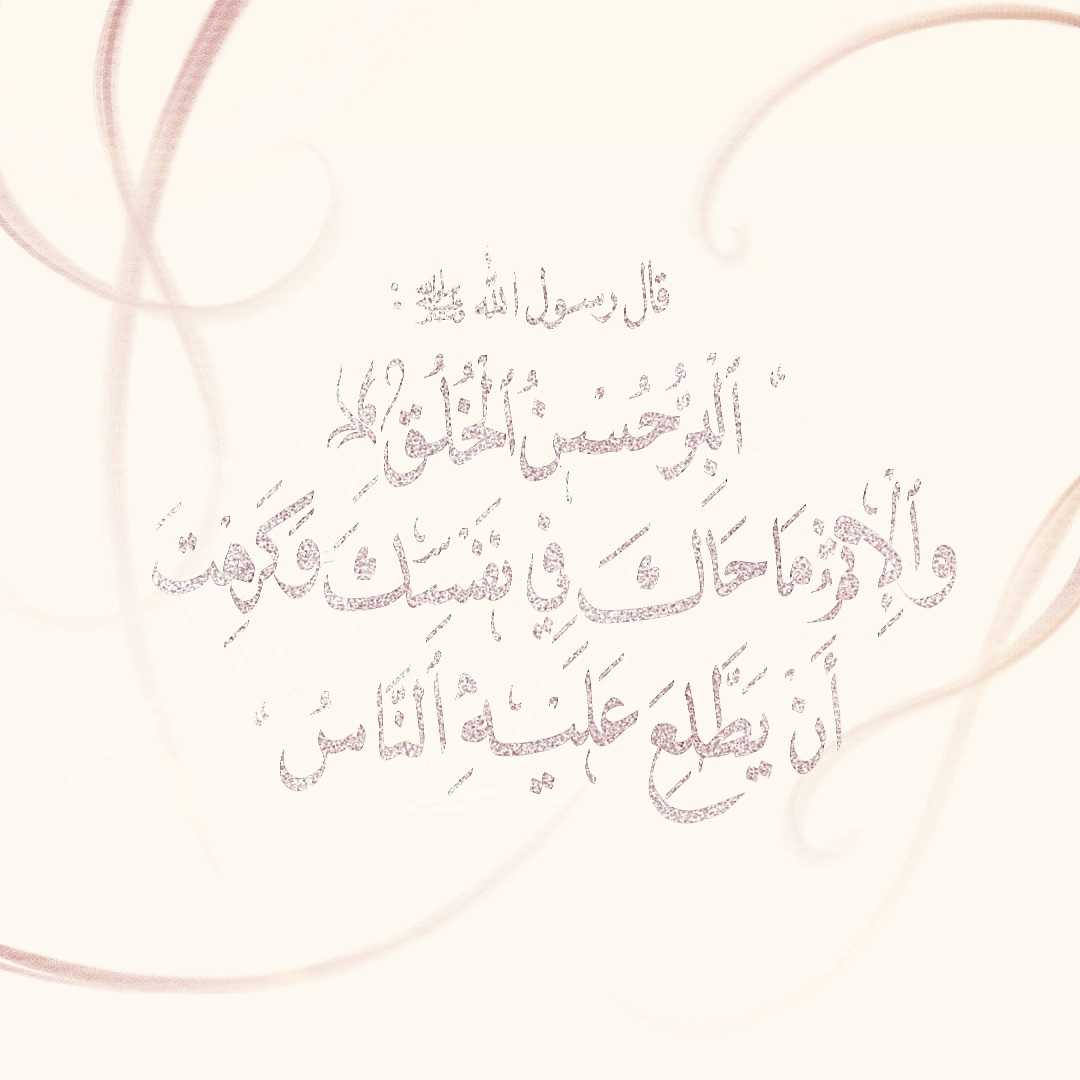 قال رسول الله ﷺ :
" ٱلْبِرُّ حُسْنُ ٱلْخُلُقِ
وَٱلْإِثْمُ مَا حَاكَ فِي نَفْسِكَ وَكَرِهْتَ
أَنْ يَطَّلِعَ عَلَيْهِ ٱلنَّاسُ "